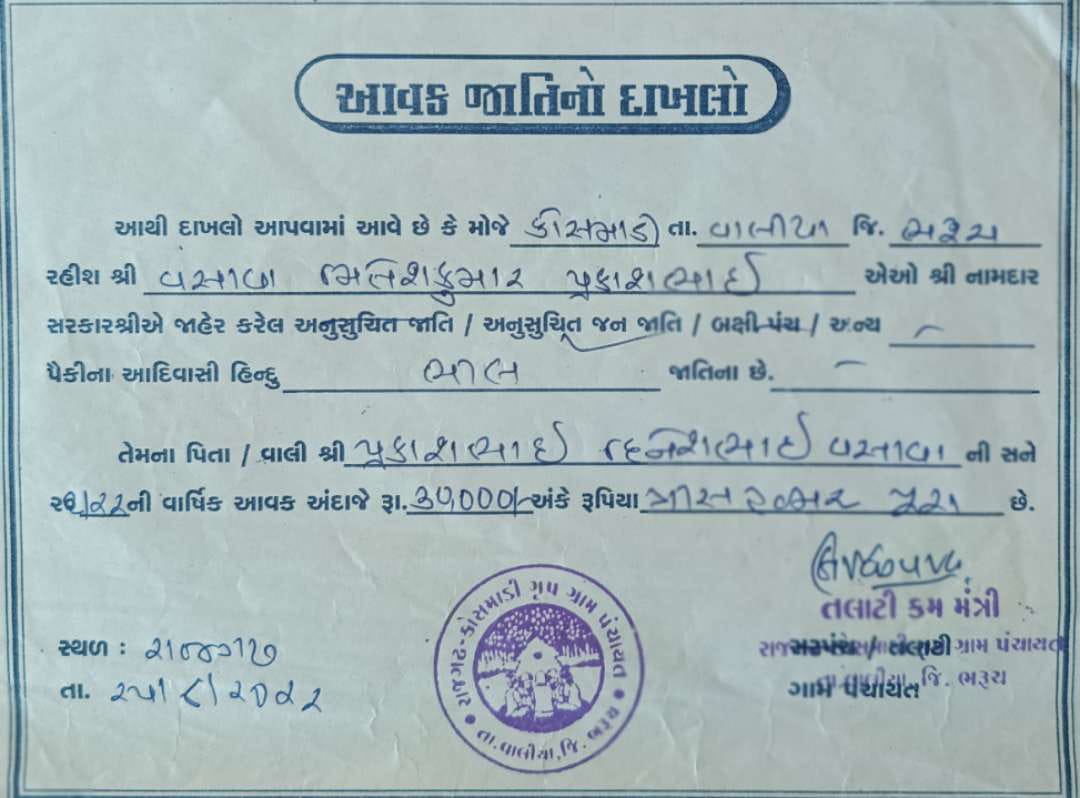 આવક જાતિનો દાખલો
આથી દાખલો આપવામાં આવે છે કે મોજે કોસમાડી તા. વાલીયા જિ. ભરૂચ
રહીશ શ્રી વસાવા પ્રકાશભાઈ એઓ શ્રી નામદાર
સરકારશ્રીએ જાહેર કરેલ અનુસુચિત જાતિ / અનુસુચિત જન જાતિ / બક્ષી પંચ / અન્ય —
પૈકીના આદિવાસી હિન્દુ ભીલ જાતિના છે. —
તેમના પિતા / વાલી શ્રી પ્રકાશભાઈ વસાવા ની સને
ની વાર્ષિક આવક અંદાજે રૂા. અંકે રૂપિયા ત્રીસ હજાર પુરા છે.
તલાટી કમ મંત્રી
સ્થળ : રાજગઢ
સરપંચ / તલાટી
ગ્રામ પંચાયત
તા. વાલીયા, જિ. ભરૂચ
ગામ પંચાયત
તા. ૨૫/૮/૨૦૨૨
રાજગઢ-કોસમાડી ગૃપ ગ્રામ પંચાયત
તા. વાલીયા, જિ. ભરૂચ